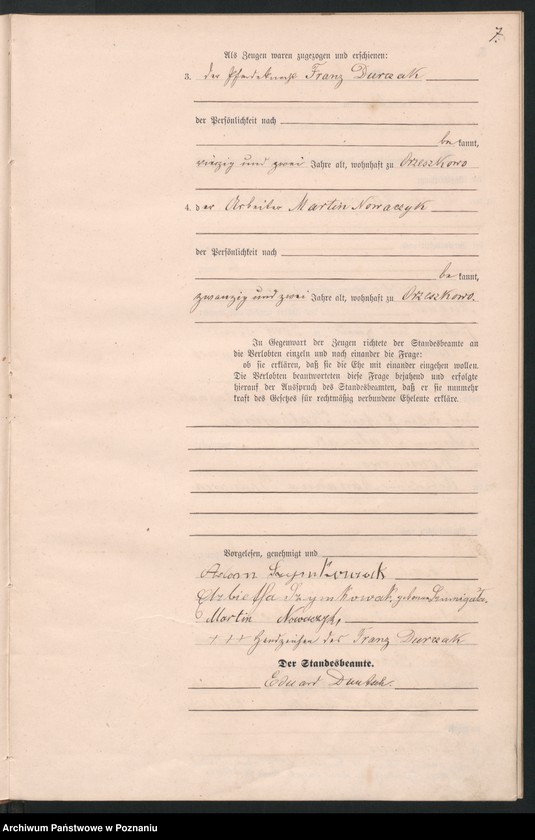 7.
Als Zeugen waren zugezogen und erschienen:
3. der Pferdeknecht Franz Durczak
der Persönlichkeit nach
be kannt,
vierzig und zwei Jahre alt, wohnhaft zu Orzeszkowo
4. der Arbeiter Martin Nowaczyk
der Persönlichkeit nach
be kannt,
zwanzig und zwei Jahre alt, wohnhaft zu Orzeszkowo.
In Gegenwart der Zeugen richtete der Standesbeamte an
die Verlobten einzeln und nach einander die Frage:
ob sie erklären, daß sie die Ehe mit einander eingehen wollen.
Die Verlobten beantworteten diese Frage bejahend und erfolgte
hierauf der Ausspruch des Standesbeamten, daß er sie nunmehr
kraft des Gesetzes für rechtmäßig verbundene Eheleute erkläre.
Vorgelesen, genehmigt und
Szymkowiak
Elzbieta Szymkowiak, geborene
Martin Nowaczyk,
+++ Handzeichen des Franz Durczak
Der Standesbeamte.
Eduard
Archiwum Państwowe w Poznaniu